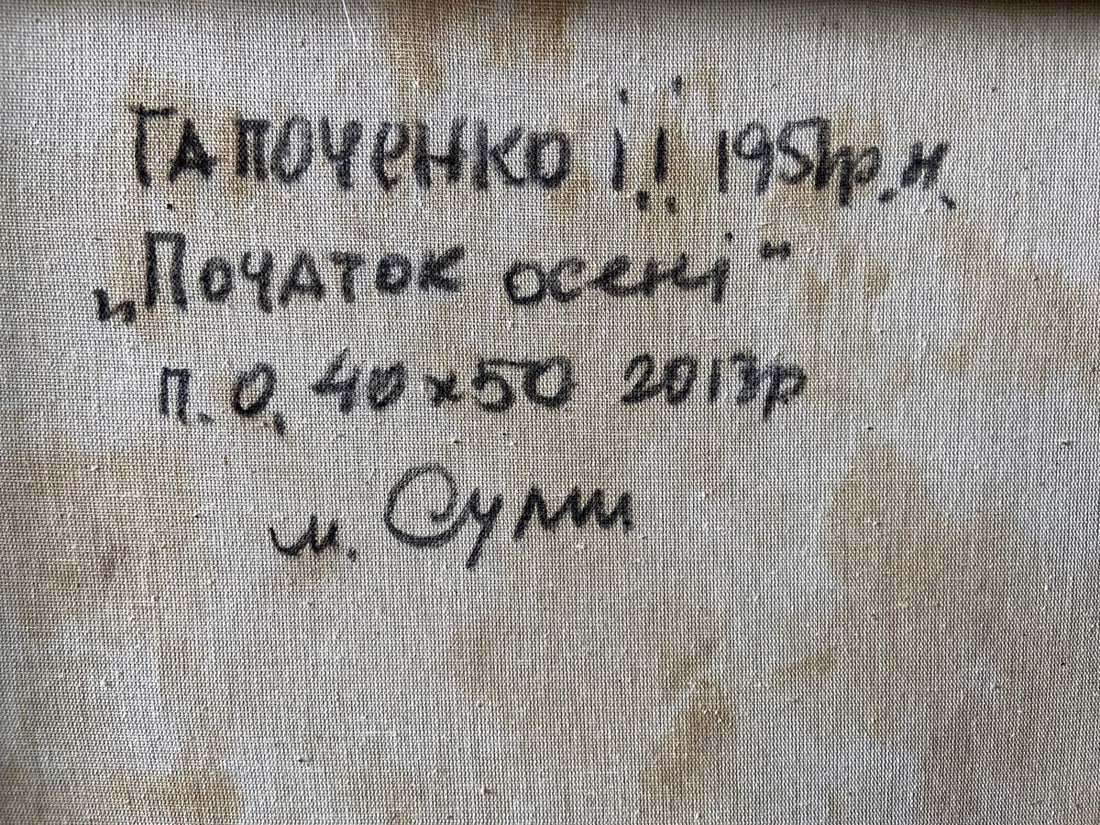 Гапоченко І.І. 1951р.н.
„Початок осені"
п.о, 40х50 2013р
м. Суми